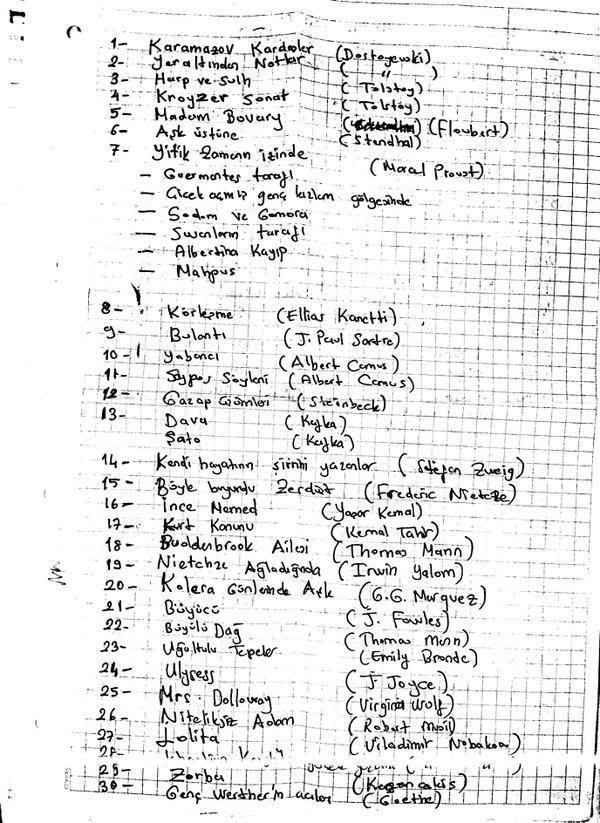 1- Karamazov Kardeşler (Dostoyewski)
2- Yeraltından Notlar ( " )
3- Harp ve Sulh ( Tolstoy)
4- Kroyzer Sonat ( Tolstoy)
5- Madam Bovary (Floubert)
6- Aşk üstüne (Stendhal)
7- Yitik Zamanın izinde (Marcel Proust)
— Guermantes tarafı
— Çiçek açmış genç kızların gölgesinde
— Sodom ve Gomora
— Swanların tarafı
— Albertina Kayıp
— Mahpus
8- Körleşme (Ellias Kanetti)
9- Bulantı (J. Paul Sartre)
10- Yabancı (Albert Camus)
11- Söyleni (Albert Camus)
12- Gazap Üzümleri (Steinbeck)
13- Dava (Kafka)
Şato (Kafka)
14- Kendi hayatının şiirini yazanlar (Stefan Zweig)
15- Böyle buyurdu Zerdüşt (Frederic Nietzsche)
16- İnce Memed (Yaşar Kemal)
17- Kurt Kanunu (Kemal Tahir)
18- Buddenbrook Ailesi (Thomas Mann)
19- Nietchze Ağladığında (Irwin Yalom)
20- Kolera Günlerinde Aşk (G.G. Marquez)
21- Büyücü (J. Fowles)
22- Büyülü Dağ (Thomas Mann)
23- Uğultulu Tepeler (Emily Bronde)
24- Ulysess (J Joyce)
25- Mrs. Dolloway (Virginia Wolf)
26- Niteliksiz Adam (Robert Musil)
27- Lolita (Viladimir Nabakov)
28-
29- Zorba (Kazancakis)
30- Genç Werther'in acıları (Goethe)